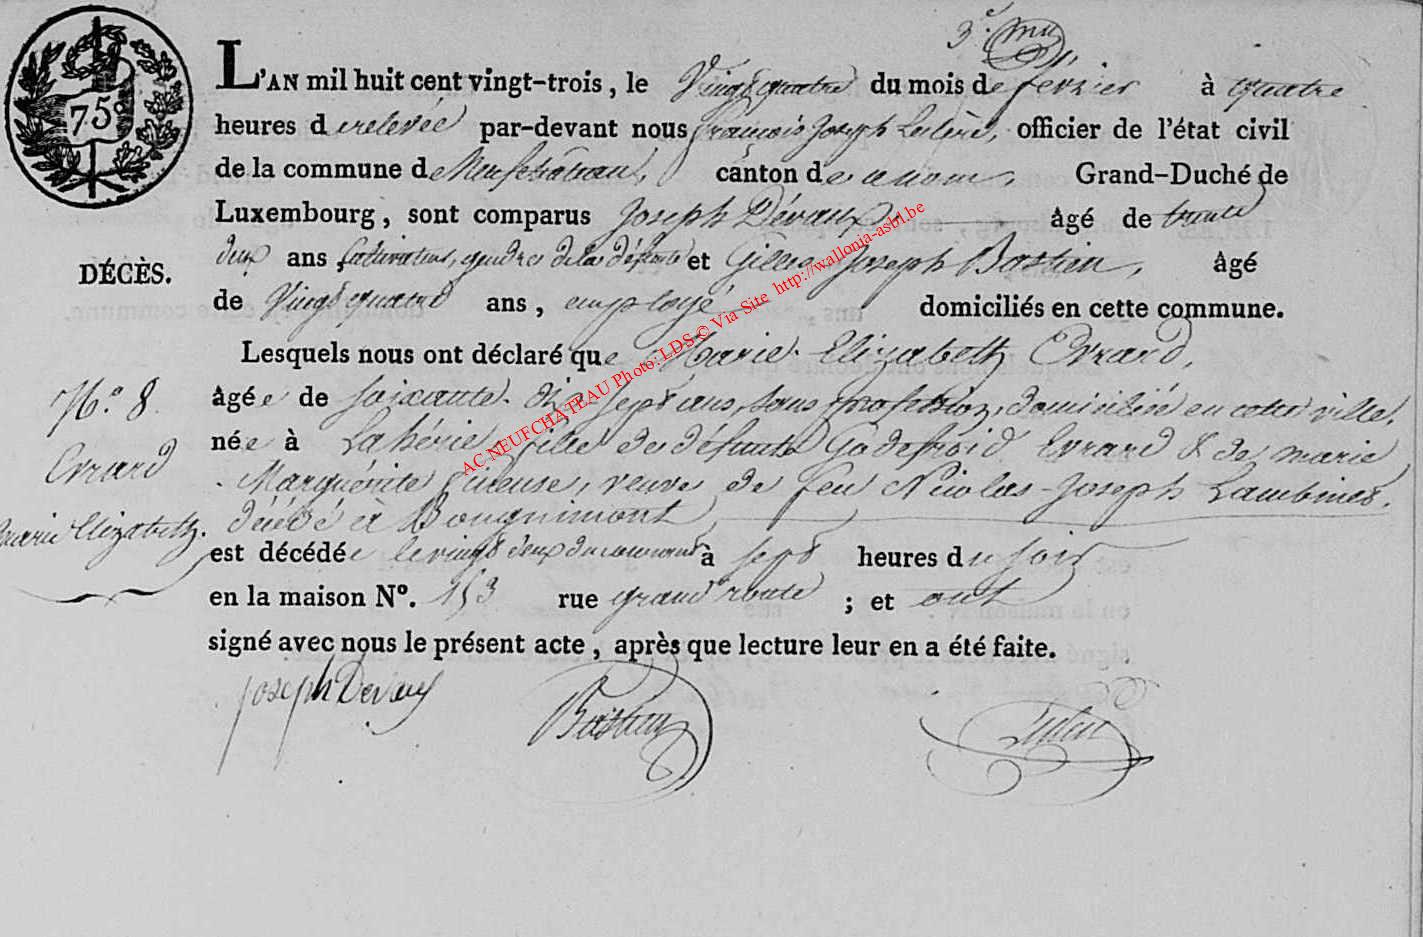 3.e
75c
L'AN mil huit cent vingt-trois, le Vingt quatre du mois de février à quatre
heures de relevée par-devant nous françois Joseph officier de l'état civil
de la commune de Neufchateau, canton de ce nom, Grand-Duché de
Luxembourg, sont comparus Joseph Dévaux, âgé de trente
deux ans, cultivateur, gendre de la défunte et Gilles Joseph Bastien, âgé
DÉCÈS.
de Vingt quatre ans, employé domiciliés en cette commune.
Lesquels nous ont déclaré que Marie Elizabeth Evrard,
N.o 8
âgée de soixante-dix-sept ans, sans profession, domiciliée en cette ville,
née à Lahérie, fille de défunts Godefroid Evrard & de marie
Evrard
Marguérite veuve de feu Nicolas-Joseph Lambinet,
marie Elizabeth.
décédé à Bougnimont,
est décédée le vingt deux du courant à sept heures du soir
en la maison No. 153 rue grand route ; et ont
signé avec nous le présent acte, après que lecture leur en a été faite.
Joseph Devaux Bastien
AC NEUFCHATEAU Photo: LDS © Via Site http://wallonia-asbl.be